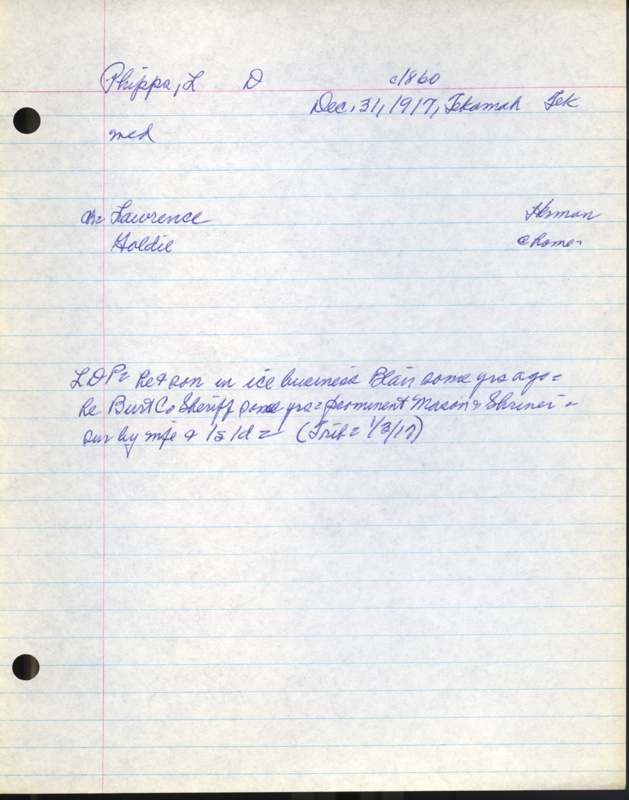 Phipps, L D c1860
Dec. 31, 1917, Tekamah Tek
med
ch= Lawrence Herman
Goldie @ home-
LDP= he & son in ice business Blair some yrs ago=
he Burt Co Sheriff some yrs= prominent Mason & Shriner-
sur by wife & 1s 1d= (Trib= 1/3/17)